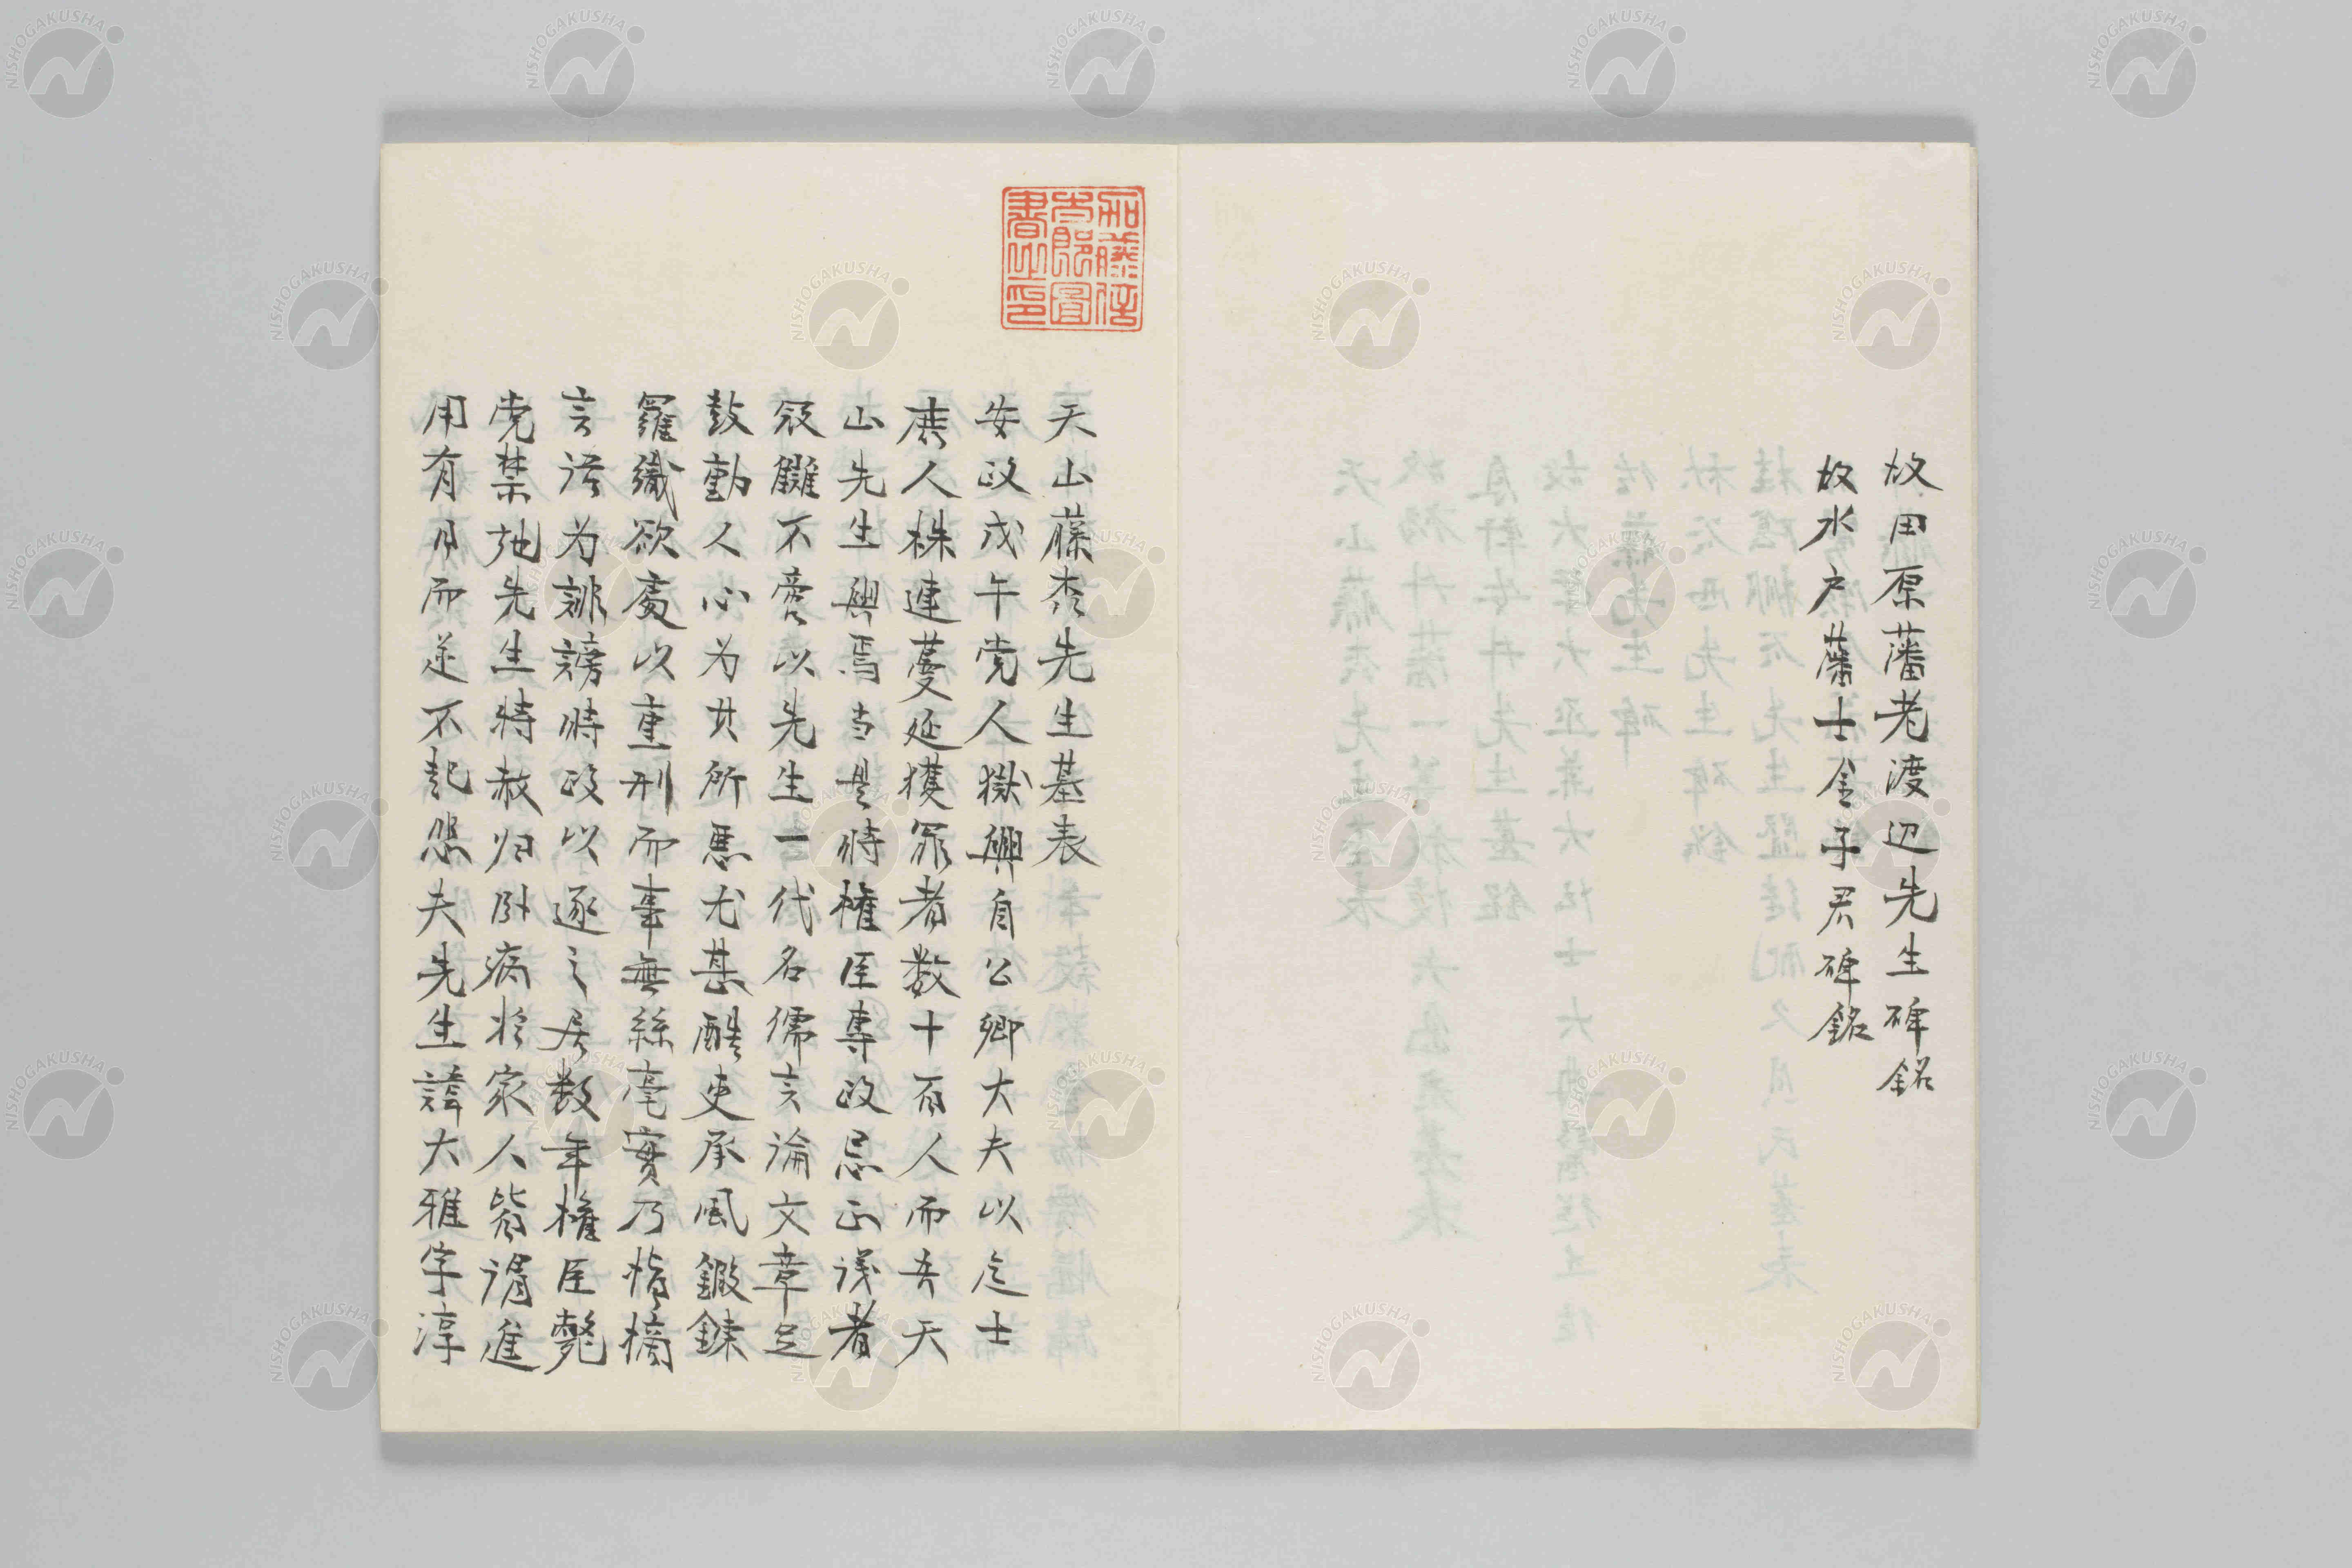 故田原藩老渡辺先生碑銘
故水戸藩士金子君碑銘
加藤信
太郎圖
書之印
天山藤森先生墓表
安政戊午党人獄興自公卿大夫以迄士
庶人株連蔓延獲罪者数十百人而吾天
山先生與焉当是時權臣專政忌正議者
仇讎不啻以先生一代名儒言論文章足
鼓動人心为其所悪尤甚酷吏承風鍛錬
羅織欲処以重刑而事無絲毫實乃指摘
言语为誹謗時政以逐之居数年權臣斃
党禁弛先生特赦归卧病於家人皆谓進
用有日而遂不起悲夫先生諱大雅字淳
NISHOGAKUSHA